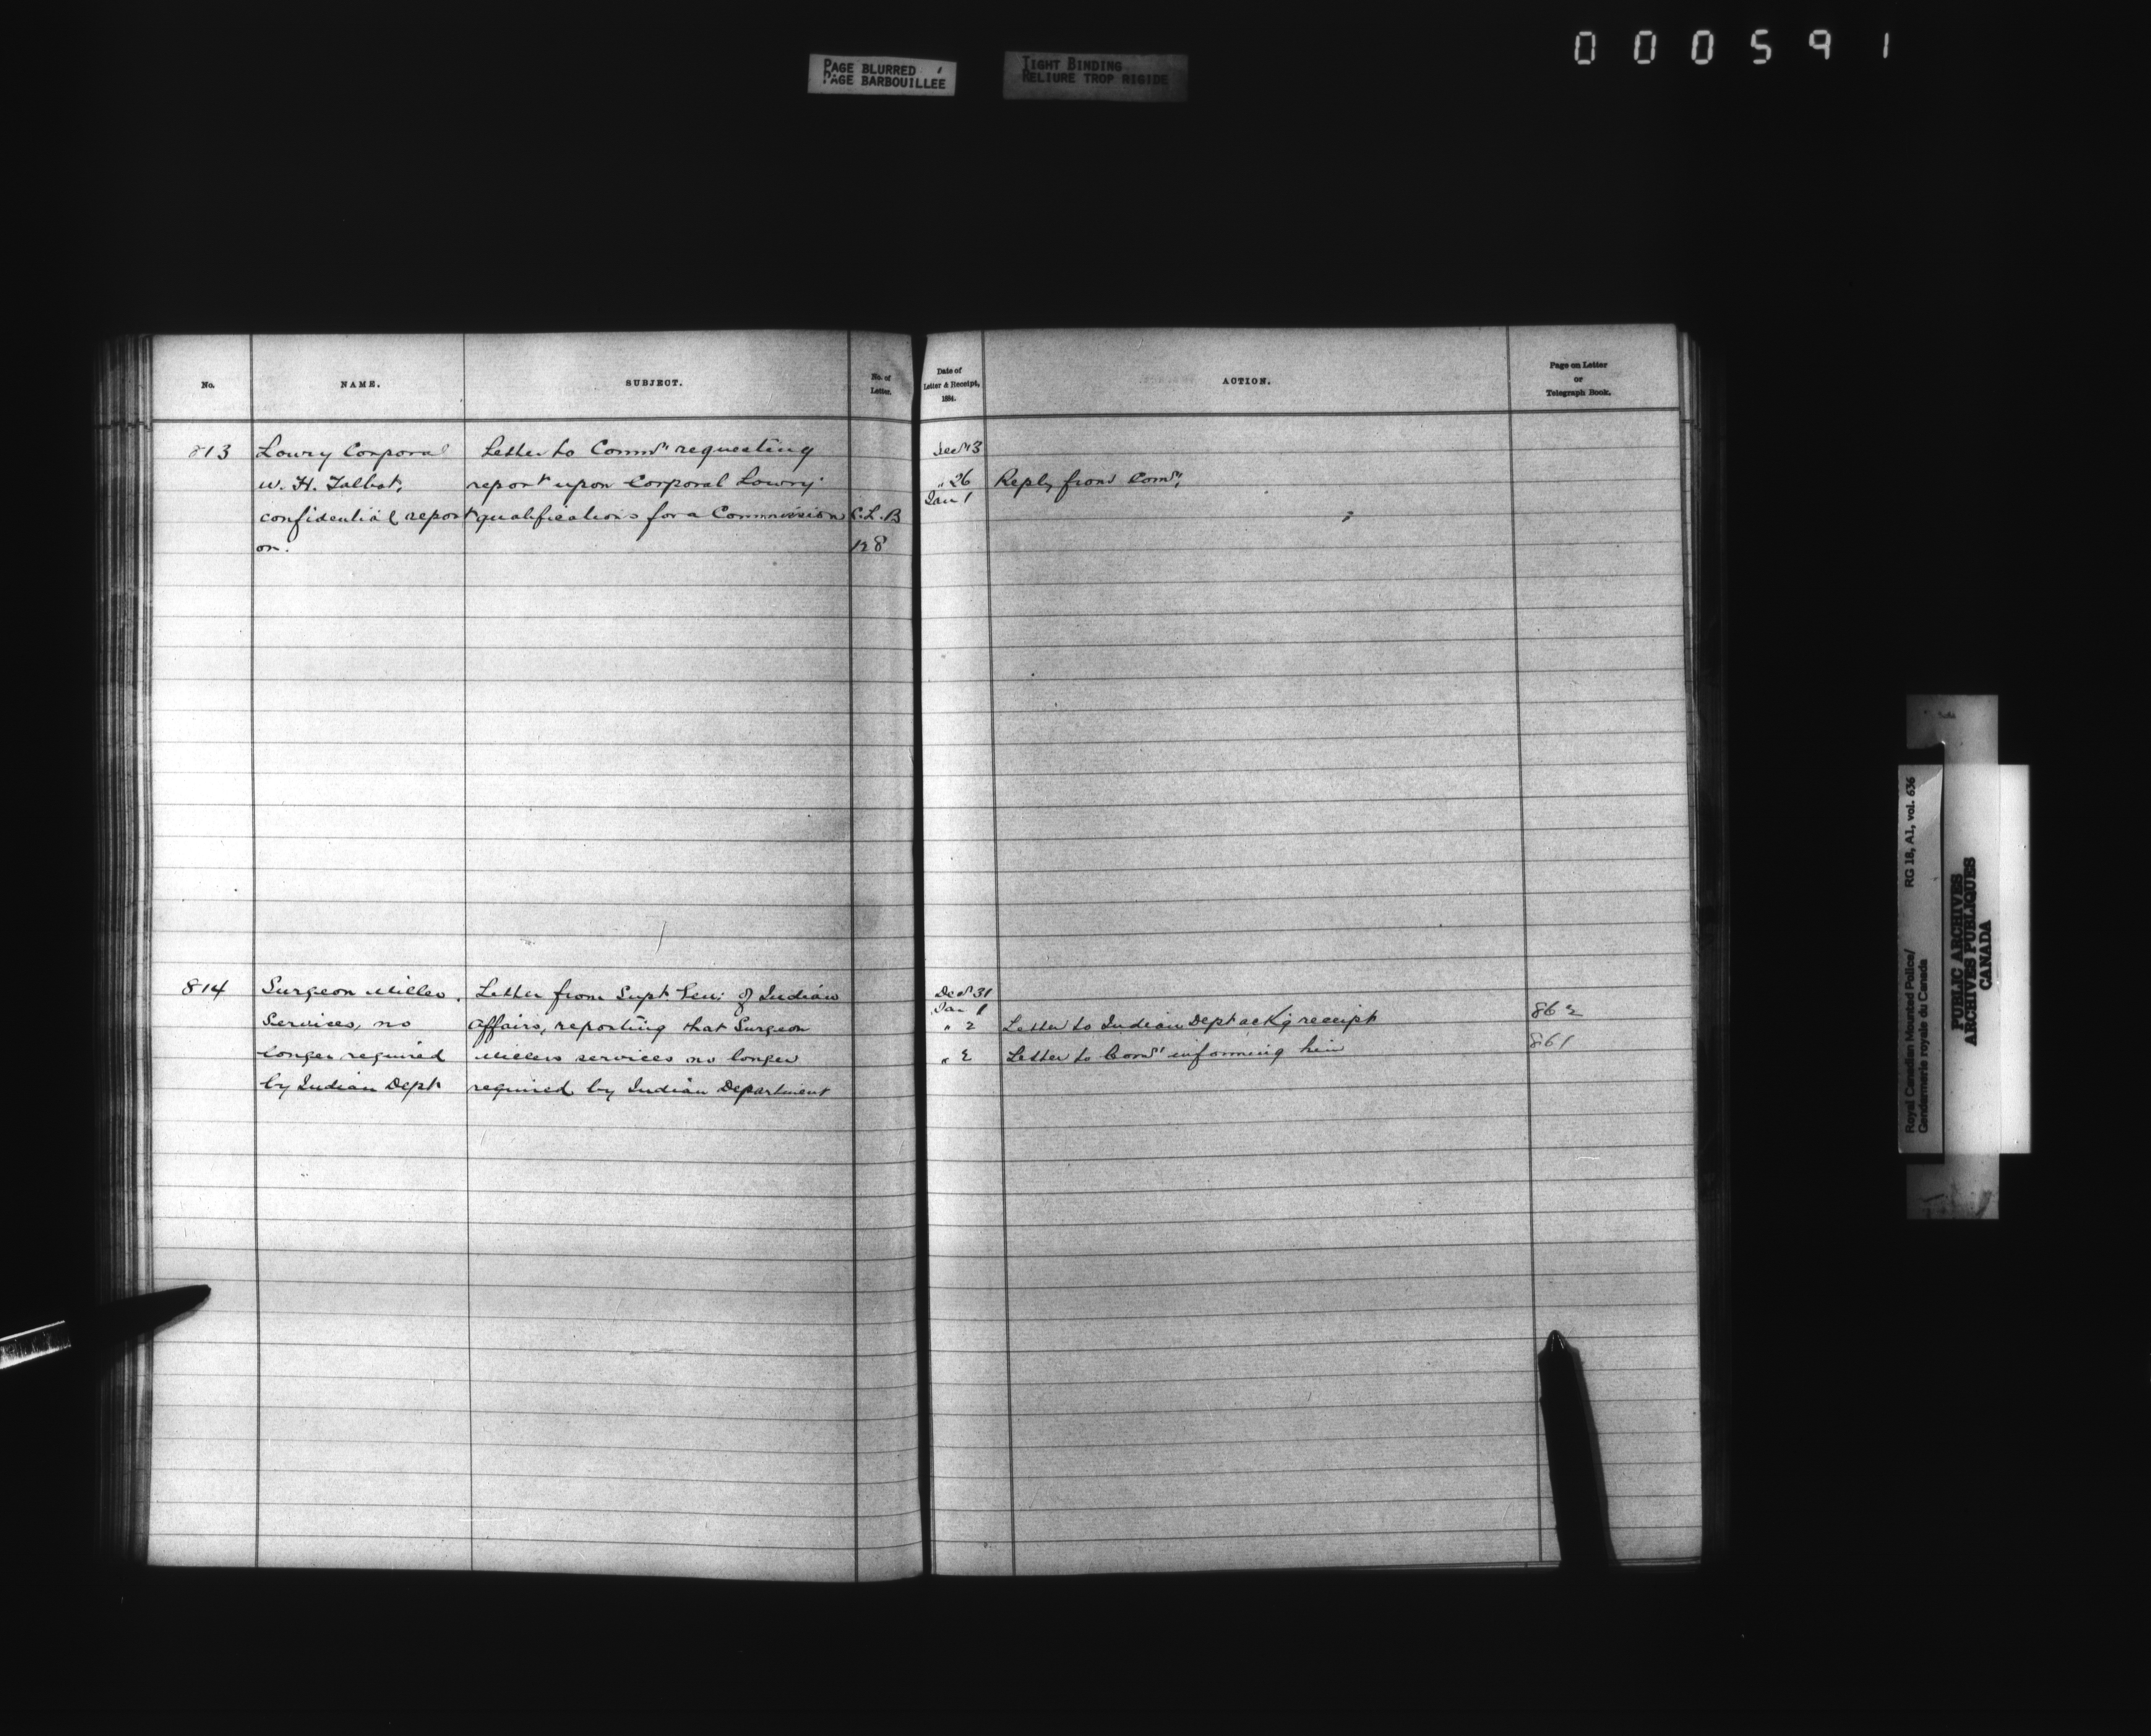 000591
PAGE BLURRED
PAGE BARBOUILLEE
TIGHT BINDING
RELIURE TROP RIGIDE
No.
NAME.
SUBJECT.
No. of
Letter.
Date of
Letter & Receipt,
1884.
ACTION.
Page on Letter
or
Telegraph Book.
813
Lowry Corporal
W. H. Talbot,
confidential report
on.
Letter to Commr requesting
report upon Corporal Lowry
qualifications for a Commission
C.L.B
128
Decr 13
" 26
Jan 1
Reply from Comr,
814
Surgeon Miller.
Services, no
longer required
by Indian Dept
Letter from Supt Gen: of Indian
Affairs, reporting that Surgeon
Millers services no longer
required by Indian Department
Decr 31
Jan 1
" 2
Letter to Indian Dept ackg receipt
862
" 2
Letter to Comr informing him
861
Royal Canadian Mounted Police/
Gendarmerie royale du Canada
RG 18, A1, vol. 636
PUBLIC ARCHIVES
ARCHIVES PUBLIQUES
CANADA